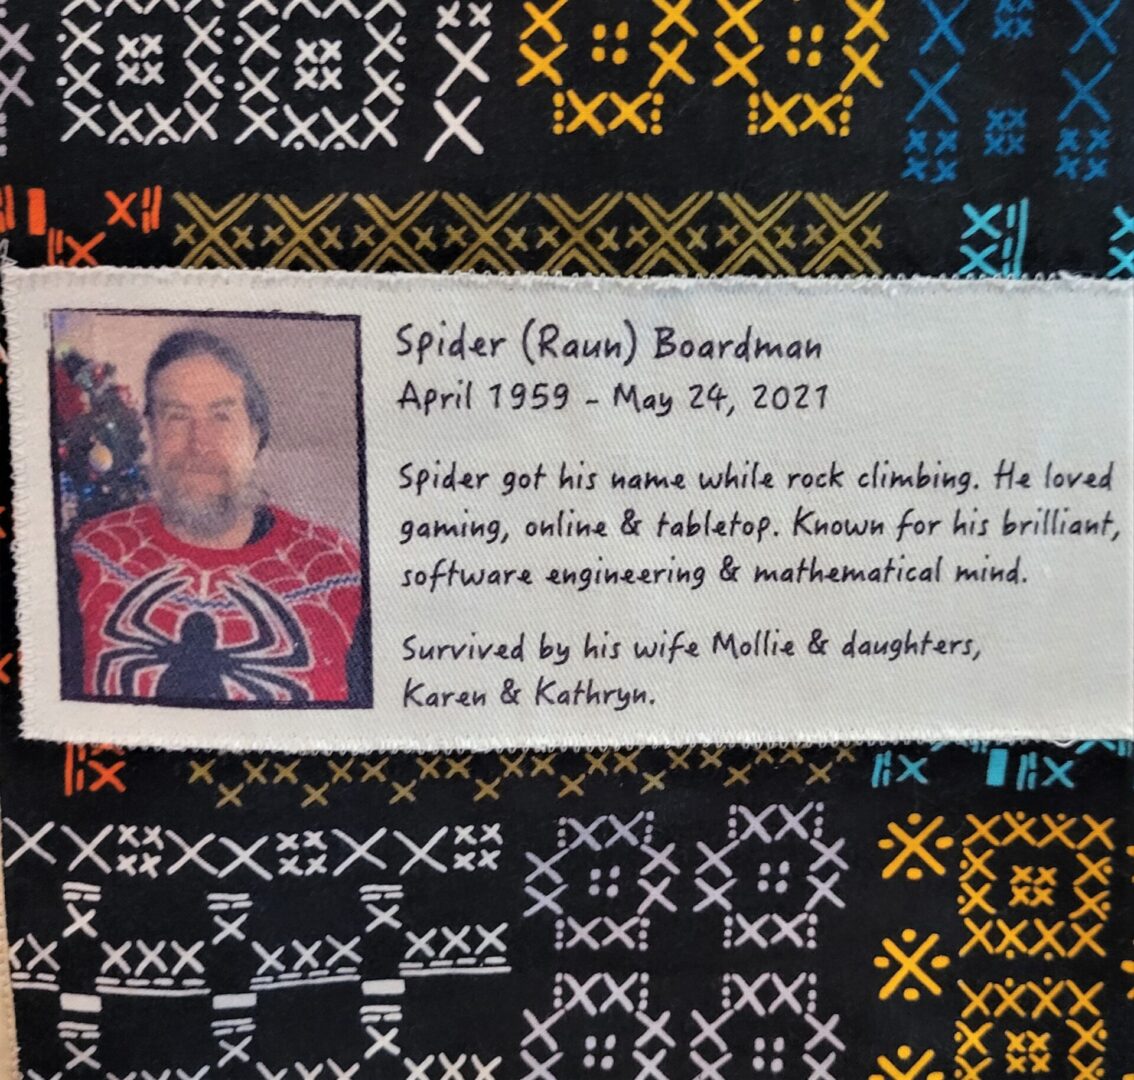 Spider (Raun) Boardman
April 1959 - May 24, 2021
Spider got his name while rock climbing. He loved
gaming, online & tabletop. Known for his brilliant,
software engineering & mathematical mind.
Survived by his wife Mollie & daughters,
Karen & Kathryn.